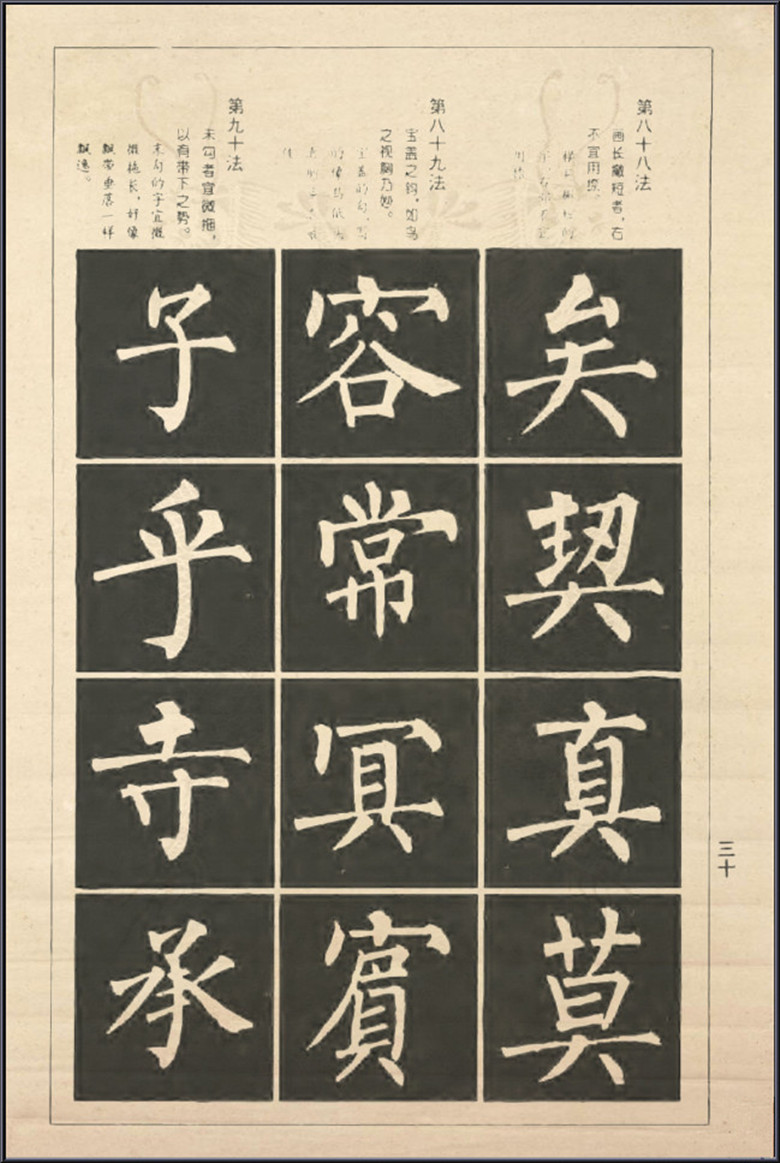 第八十八法
画长撇短者，右
不宜用捺。
矣
契
真
莫
第八十九法
宝盖之钩，如鸟
之视胸乃妙。
容
常
冥
賔
第九十法
末勾者宜微拖，
以有带下之势。
末勾的字宜微
微拖长，好像
飘带垂落一样
飘逸。
子
乎
寺
承
三十